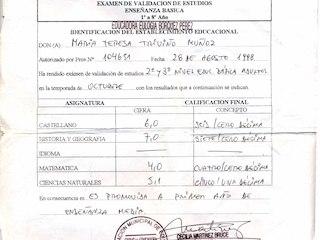 EXAMEN DE VALIDACION DE ESTUDIOS
ENSEÑANZA BASICA
1º a 8º Año
EDUCADORA EULOGIA BORQUEZ PEREZ
IDENTIFICACION DEL ESTABLECIMIENTO EDUCACIONAL
DON (A) MARÍA TERESA TRIVIÑO MUÑOZ
Autorizado por Prov Nº 104651 FECHA 26 DE AGOSTO 1998
Ha rendido examen de validación de estudios de 2º y 3º NIVEL EDUC. BÁSICA ADULTOS
en la temporada de OCTUBRE con los resultados que a continuación se indican.
ASIGNATURA CALIFICACION FINAL
CIFRA CONCEPTO
CASTELLANO 6,0 SEIS/CERO DÉCIMA
HISTORIA Y GEOGRAFIA 7,0 SIETE/CERO DÉCIMA
IDIOMA
MATEMATICA 4,0 CUATRO/CERO DÉCIMA
CIENCIAS NATURALES 5,1 CINCO/UNA DÉCIMA
En consecuencia ES PROMOVIDA A PRIMER AÑO DE
ENSEÑANZA MEDIA
CECILIA MARTINEZ BRUCE